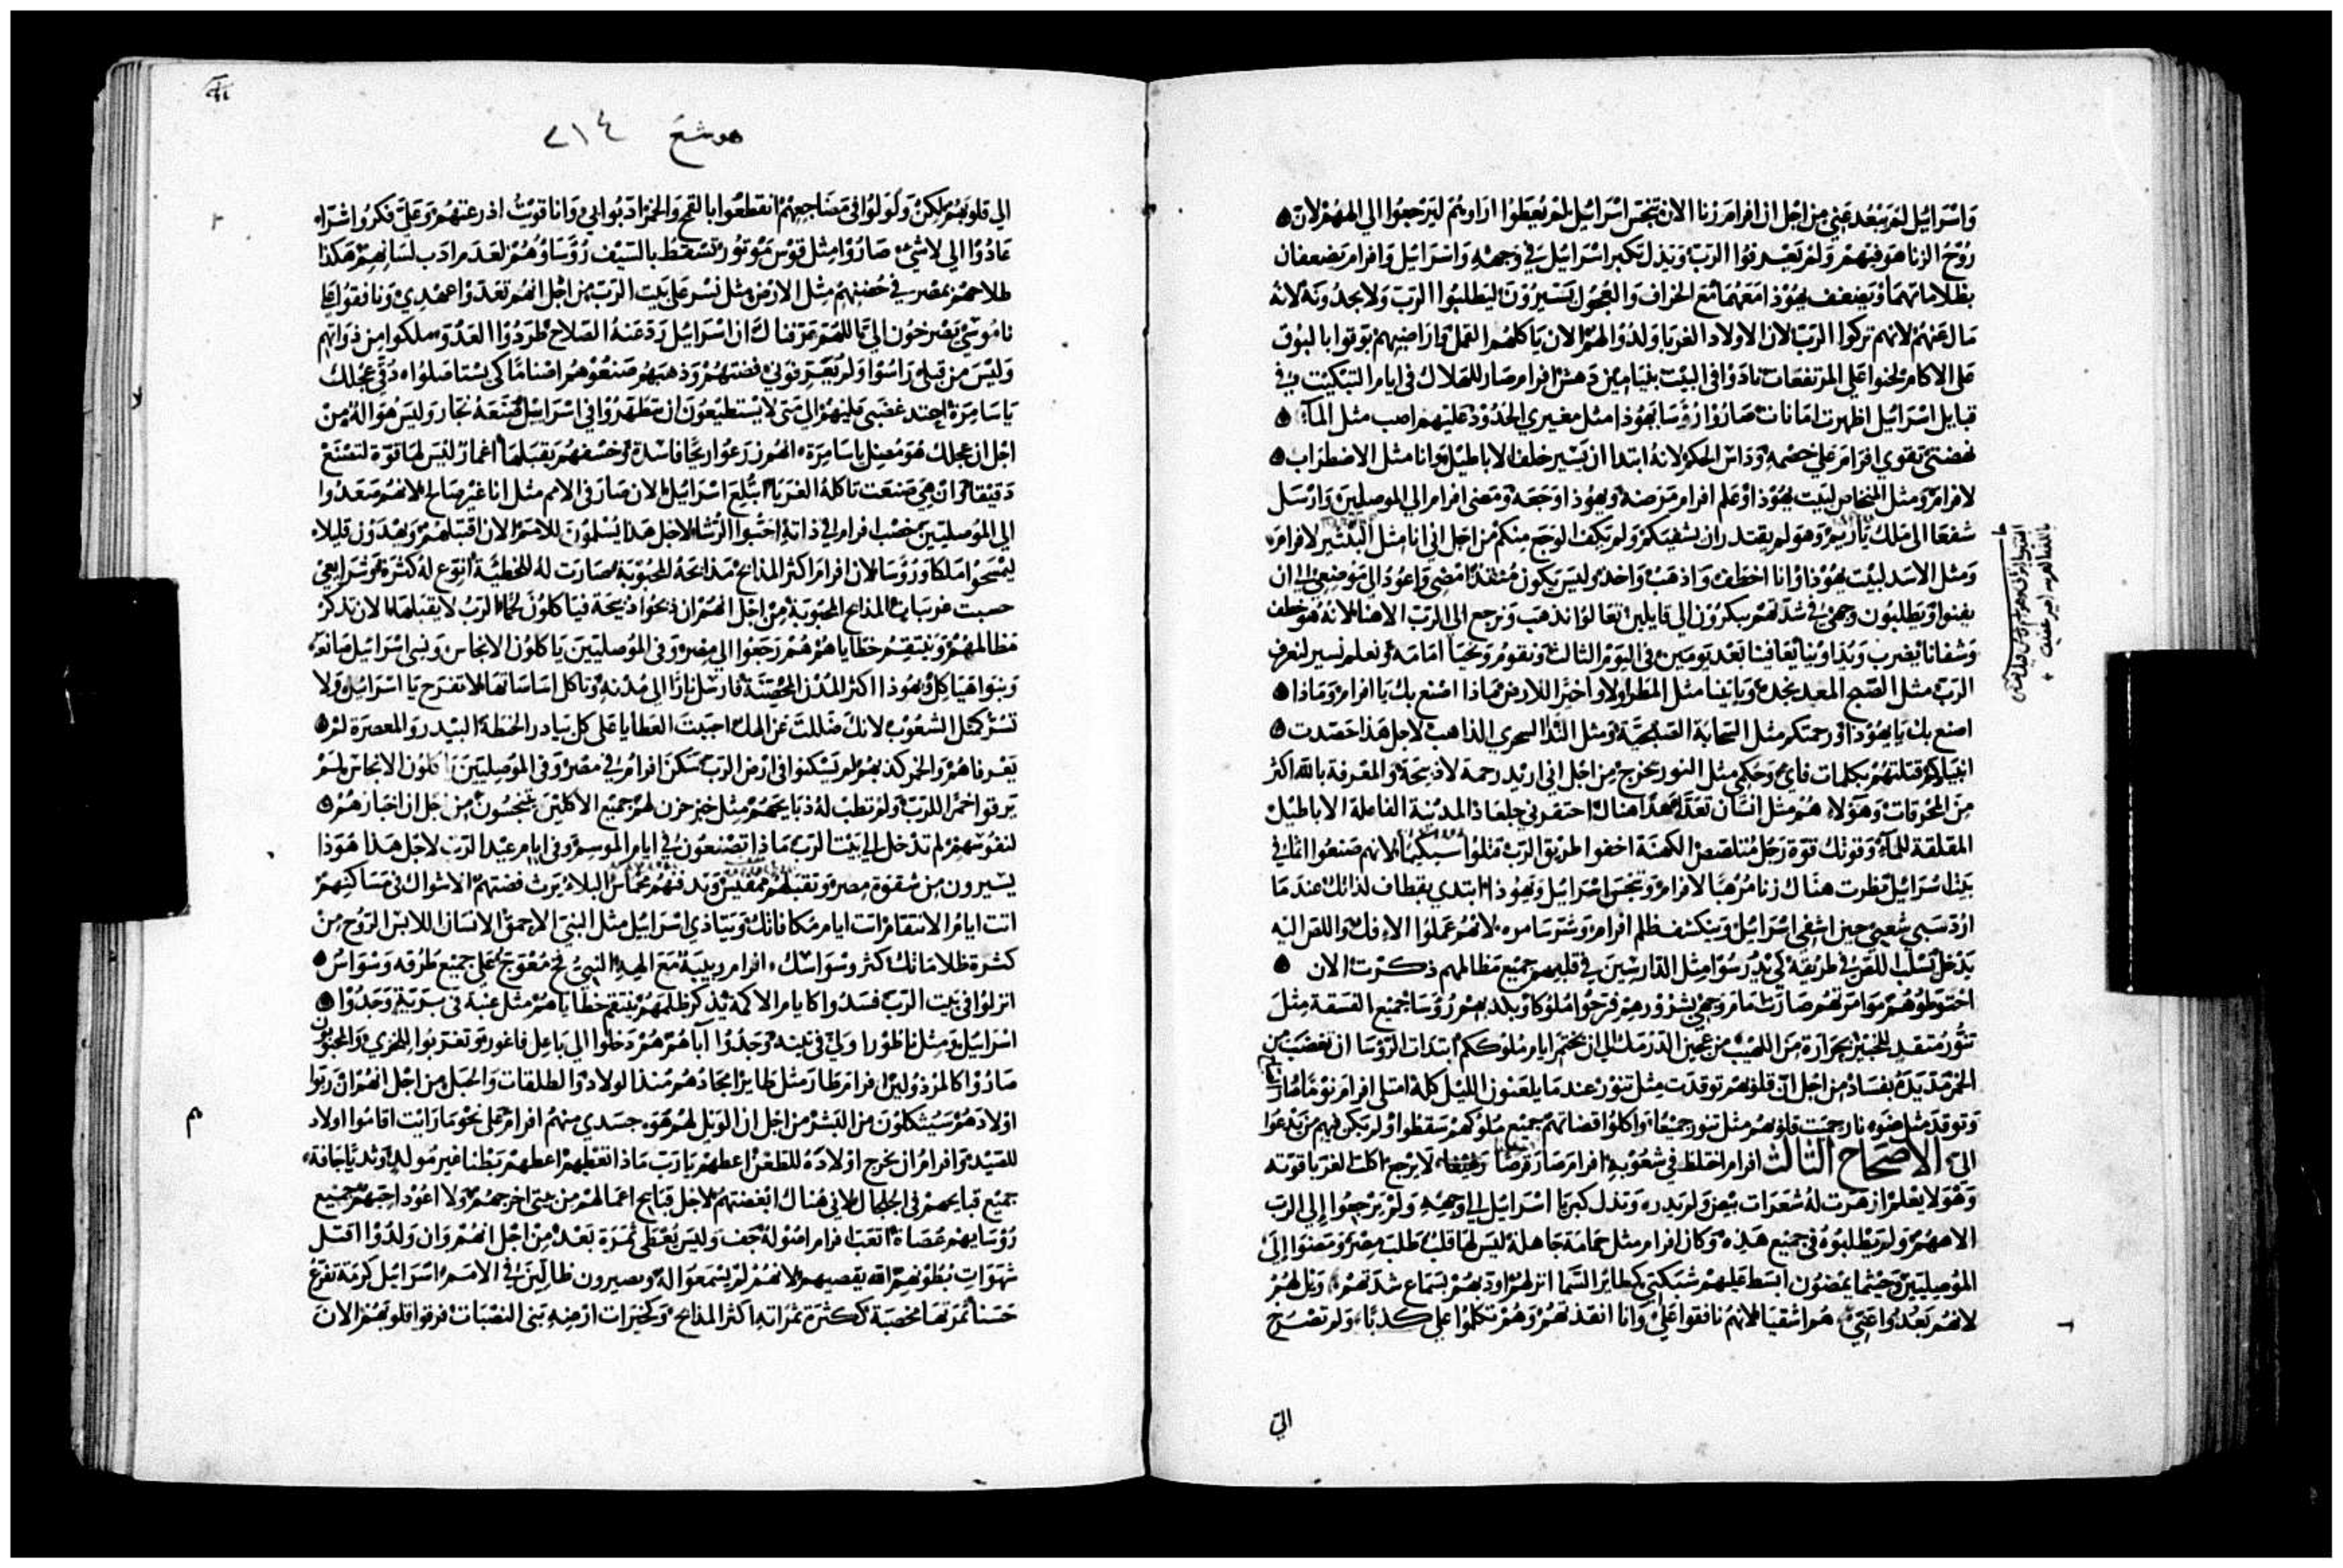 واسرائيل لم يبعد عني من اجل ان افرام زنا الان تنجس اسرائيل لم يعطوا اراويتهم ليرجعوا الي الههم لان
روح الزنا هو فيهم ولم يعرفوا الرب ويذل تكبر اسرائيل في وجهه واسرائيل وافرام يضعفان
بظلاماتهما ويضعف يهوذا معهما مع الخراف والعجول يسيرون ليطلبوا الرب ولا يجدونه لانه
مال عنهم لانهم تركوا الرب لان الاولاد الغربا ولدوا لهم الان ياكلهم العمل واراضيهم بوقوا بالبوق
علي الاكام لحنوا علي المرتفعات نادوا في البيت بنيامين دهش افرام صار للهلاك في ايام التبكيت في
قبايل اسرائيل اظهرت امانات صاروا رؤسا يهوذا مثل مغيري الحدود عليهم اصب مثل المآء
نهضتي تقوي افرام علي خصمه وداس الحكم لانه ابتدا ان يسير خلف الاباطيل وانا مثل الاضطراب
لافرام ومثل المنخاس لبيت يهوذا وعلم افرام مرضه ويهوذا وجعه ومضي افرام الي الموصليين وارسل
شفعا الي ملك ياريم وهو لم يقتدر ان يشفيكم ولم يكف الوجع منكم من اجل اني انا مثل الببر لافرام
ومثل الاسد لبيت يهوذا وانا اخطف واذهب واخذ وليس يكون منقذ امضي واعود الي موضعي الي ان
يفنوا ويطلبون وجهي في شدتهم يبكرون الي قايلين تعالوا نذهب ونرجع الي الرب الاهنا لانه هو خطف
وشفانا يضرب ويداوينا يعافينا بعد يومين في اليوم الثالث ونقوم ونحيا امامه ونعلم نسير لنعرف
الرب مثل الصبح المعد نجده وياتينا مثل المطر اولا واخيرا للارض فماذا اصنع بك يا افرام وماذا
اصنع بك يا يهوذا ورحمتكم مثل السحابة الصبحية ومثل الندا السحري الذاهب لاجل هذا حصدت
انبياكم قتلتهم بكلمات فاي وحكمي مثل النور يخرج من اجل اني اريد رحمة لا ذبيحة والمعرفة بالله اكثر
من المحرقات وهولاء هم مثل انسان تعدا عهدا هناك احتقرني جلعاد المدينة الفاعلة الاباطيل
المقلقة للمآء وقوتك قوة رجل متلصص الكهنة اخفوا طريق الرب قتلوا سيكيما لانهم صنعوا اثما في
بيت اسرائيل نظرت هناك زنا مرهبا لافرام وتنجس اسرائيل ويهوذا ابتدي بقطاف لذاتك عند ما
ارد سبي شعبي حين اشفي اسرائيل وينكشف ظلم افرام وشر سامره لانهم عملوا الافك واللص اليه
يدخل تسلب اللص في طريقه كي يدرسوا مثل الدارسين في قلبهم جميع مظالمهم ذكرت الان
احتوطوهم موامرتهم صارت امام وجهي بشرورهم فرحوا ملوكا وبلديهم رؤسا جميع الفسقة مثل
تنور متقد للخبيز بحرارة من اللهيب من عجين الدرمك الي ان يختمر ايام ملوككم ابتدات الرؤسا ان تغضب من
الخمر مد يده بفساد من اجل ان قلوبهم توقدت مثل تنور عندما يلعنون الليل كله امتلي افرام نوما
وتوقد مثل ضوء نار حميت قلوبهم مثل تنور جميعا واكلوا قضاتهم جميع ملوكهم سقطوا ولم يكن فيهم من يدعوا
الي الاصحاح الثالث افرام اختلط في شعوبه افرام صار قرصا لا يرجع اكلت الغربا قوته
وهو لا يعلم ازهرت له شعرات بيض ولم يدره وتذل كبريا اسرائيل الي وجهه ولم يرجعوا إلي الرب
الاههم ولم يطلبوه في جميع هذه وكان افرام مثل حمامة جاهلة ليس لها قلب طلب مصر ومضوا إلي
الموصليين وحيثما يمضون ابسط عليهم شبكتي كطائر السما انزلهم اودبهم بسماع شدتهم ويل لهم
لانهم بعدوا عني هم اشقيا لانهم نافقوا علي وانا انقذتهم وهم تكلموا علي كذبا ولم تصرخ
الي
هوشع ٢١٤
الي قلوبهم لكن ولولوا في مضاجعهم انقطعوا بالقمح والخمر ادبوا بي وانا قويت اذرعتهم وعلي فكروا شرا
عادوا الي لا شي صاروا مثل قوس موتور تسقط بالسيف رؤساؤهم لعدم ادب لسانهم هكذا
طلاحهم بمصر في حضنهم مثل الارض مثل نسر علي بيت الرب من اجل انهم تعدوا عهدي ونافقوا علي
ناموسي يصرخون الي يا اللهم عرفناك ان اسرائيل رد عنه الصلاح طردوا العدو ملكوا من ذواتهم
وليس من قبلي راسوا ولم يعرفوني فضتهم وذهبهم صنعوهم اصناما كي يستاصلوا ردي عجلك
يا سامرة احتد غضبي عليهم الي متي لا يستطيعون ان يتطهروا في اسرائيل صنعه نجار وليس هو اله من
اجل ان عجلك هو مضل يا سامرة انهم زرعوا ريحا فاسدة وخسفهم يقبلها اغمار ليس لها قوة لتصنع
دقيقا وان هي صنعت تاكله الغربا ابتلع اسرائيل الان صار في الامم مثل انا غير صالح لانهم صعدوا
الي الموصليين خصب افرام في ذاته احبوا الرشا لاجل هذا يسلمون للامم الان اقبلهم ويهدون قليلا
ليمسحوا ملكا ورؤسا لان افرام اكثر المذابح مذابحه المحبوبة صارت له للخطية انوع له كثرة شرايعي
حسبت غربيات المذابح المحبوبة من اجل انهم ان ذبحوا ذبيحة فياكلون لحما الرب لا يقبلها الان تذكر
مظالمهم وينتقم خطاياهم هم رجعوا الي مصر وفي الموصليين ياكلون الانجاس ونسي اسرائيل صانعه
وبنوا هياكل ويهوذا اكثر المدن المحصنة فارسل نارا الي مدنه وتاكل اساساتها لا تفرح يا اسرائيل ولا
تسر كمثل الشعوب لانك ضللت عن الهك احببت العطايا علي كل بيادر الحنطة البيدر والمعصرة لم
يعرفاهم والخمر كذبهم لم يسكنوا في ارض الرب سكن افرام في مصر وفي الموصليين ياكلون الانجاس لم
يرقوا خمرا للرب ولم تطب له ذبايحهم مثل خبز حزن لهم جميع الاكلين يتنجسون من اجل ان اخبازهم
لنفوسهم لم تدخل الي بيت الرب ماذا تصنعون في ايام الموسم وفي ايام عيد الرب لاجل هذا هوذا
يسيرون من شقوة مصر وتقبلهم ممفيس وتدفنهم مخماس البلاء يرث فضتهم الاشواك في مساكنهم
اتت ايام الانتقام اتت ايام مكافاتك ويتاذي اسرائيل مثل النبي الاحمق الانسان اللابس الروح من
كثرة ظلاماتك كثر وسواسك افرام ربيبة مع الهه النبي فخ معوج علي جميع طرقه وسواس
انزلوا في بيت الرب فسدوا كايام الاكمة يذكر ظلمهم ينتقم خطاياهم مثل عنبة في برية وجدوا
اسرائيل ومثل ناطورا ولي في تينه وجدوا آباهم هم دخلوا الي باعل فاغور وتغربوا للخزي والمحبوبون
صاروا كالمرذولين افرام طار مثل طاير امجادهم منذ الولاد والطلقات والحبل من اجل انهم ان ربوا
اولادهم سيثكلون من البشر من اجل ان الويل لهم هوه جسدي منهم افرام علي نحو ما رايت اقاموا اولاد
للصيد وافرام ان يخرج اولاده للطعن اعطهم يا رب ماذا تعطيهم اعطهم بطنا غير مولد وثديا جافة
جميع قبايحهم في الجلجال لاني هناك ابغضتهم لاجل قبايح اعمالهم من بيتي اخرجهم ولا اعود احبهم جميع
رؤسايهم عصاة اتعب افرام اصوله جف وليس يعطي ثمرة بعد من اجل انهم وان ولدوا اقتل
شهوات بطونهم الله يقصيهم لانهم لم يسمعوا له ويصيرون ظالين في الامم اسرائيل كرمة تفرع
حسنا ثمرتها مخصبة ككثرة ثمراته اكثر المذابح وكخيرات ارضه بني النصبات فرقوا قلوبهم الان